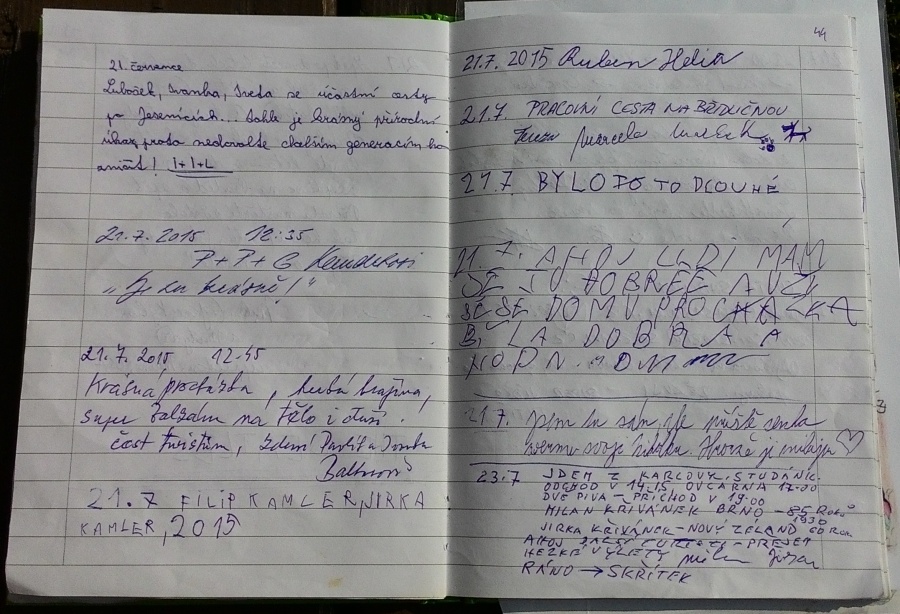 21. července
Lubošek, Ivanka, Iveta se účastní cesty
po Jeseníkách... Tohle je krásný přírodní
úkaz, proto nedovolte dalším generacím ho
zničit! I+I+L
21.7.2015 12:35
P+P+G
"Je tu krásně!"
21.7.2015 12.45
Krásná procházka, krajina,
super balzám na tělo i duši.
čest turistům, zdraví Pavel a
21.7 FILIP KAMLER, JIRKA
KAMLER, 2015
44
21.7. 2015 Ruben Helia
21.7. PRACOVNÍ CESTA NA BĚDUČNOU
Marcela
21.7 BYLO TO DLOUHÉ
21.7. AHOJ LIDI MÁM
SE TU DOBŘE A UŽ
SE DOMU PROCHÁZKA
BYLA DOBRÁ A
21.7. jsem tu sám, ale příště
vezmu svoje
23.7 JDEM Z KARLOVY STUDÁNK
ODCHOD V 14.15, OVČÁRNA 17.00
DVĚ PIVA – PŘÍCHOD V 19.00
MILAN KŘIVÁNEK BRNO – 85 ROKŮ
1930
JIRKA KŘIVÁNEK – NOVÝ ZÉLAND 60 ROK
AHOJ DALŠÍ TURISTI – PŘEJEM
HEZKÉ VÝLETY
RÁNO → SKŘÍTEK